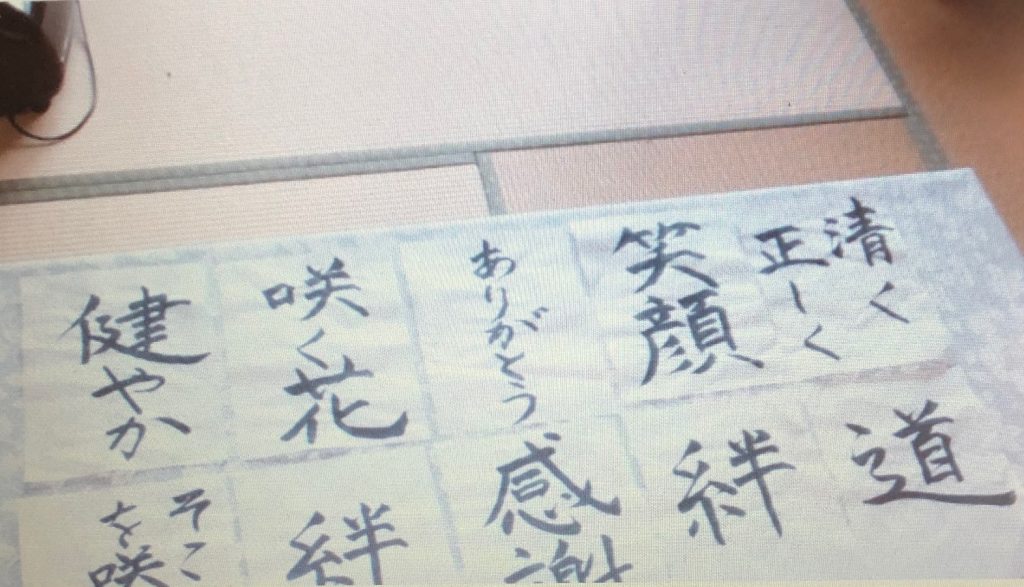 清く
正しく
笑顔
ありがとう
咲く花
健やか
道
絆
感謝
絆
そこ
を咲